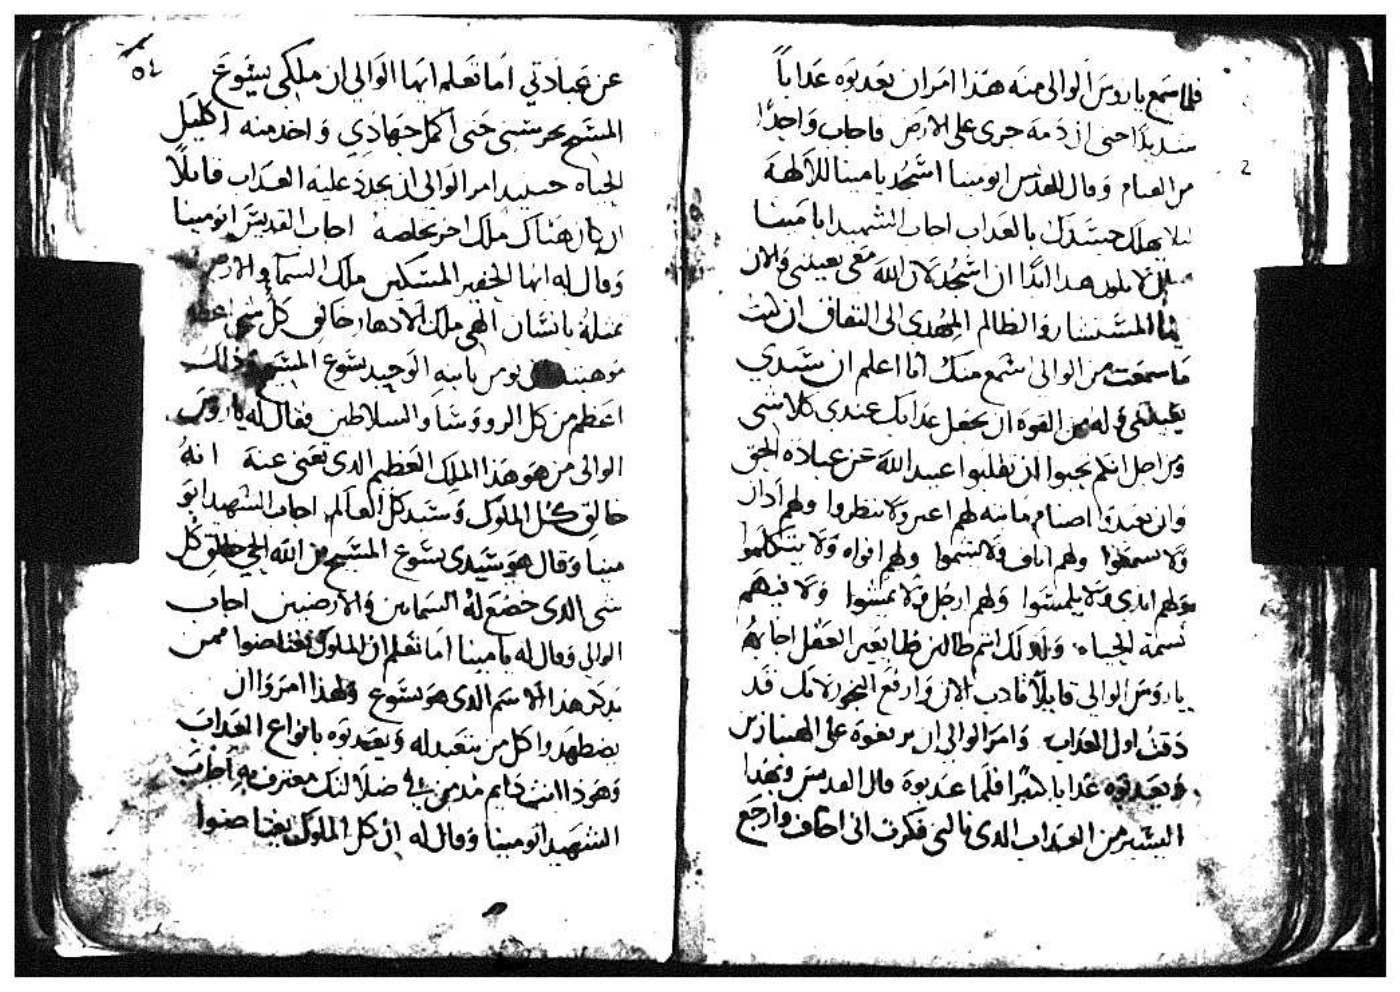 فلما سمع ياروس الوالي منه هذا امر ان يعدبوه عدابا
شديدا حتى ان دمه جرى على الارض فاجاب واحدا
من القيام وقال للقديس ابو مينا اسجد يا مينا للالهة
ليلا يهلك جسدك بالعداب اجاب الشهيد ابا مينا
لا يكون هدا ابدا ان اسجد لان الله معى يعيننى والان
المستشار الظالم المهدى الى النفاق ان كنت
ما سمعت من الوالى اسمع منك انا اعلم ان سيدي
يعيننى وله من القوة ان يجعل عدابك عندى كلا شى
ومن اجل انكم تحبوا ان تطلبوا عبيد الله عن عباده الحق
وان يعبدوا اصنام مايته لهم اعين ولا ينظروا ولهم ادان
ولا يسمعوا ولهم اناف ولا يشموا ولهم افواه ولا يتكلموا
ولهم ايدى ولا يلمسوا ولهم ارجل ولا يمشوا ولا فيهم
نسمة الحياه ولدلك انتم ظالمين بغير العقل اجابه
ياروس الوالي قايلا الان وارفع البخور لانك قد
دقت اول العداب وامر الوالى ان على الهنبازين
ويعدبوه عدابا كبيرا فلما عدبوه قال القديس
اليسير من العداب الدى نالنى فكرت انى اخاف وارجع
٥٤
عن عبادتي اما تعلم ايها الوالي ان ملكي يسوع
المسيح يحرسني حتى اكمل جهادي واخد منه اكليل
الحياه حينيد امر الوالى ان يجدد عليه العداب قايلا
ان كان هناك ملك اخر يخلصه اجاب القديس ابو مينا
وقال له ايها الحقير المسكين ملك السما والارض
تمتله بانسان الهي ملك الادهار خالق كل شي اعطا
موهبته يومن باسه الوحيد يسوع المسيح ودلك
اعظم من كل الرووسا والسلاطين فقال له ياروس
الوالى من هو هذا الملك العظيم الدى تعنى عنه انه
خالق كل الملوك وسيد كل العالم اجاب الشهيد ابو
مينا وقال هو سيدى يسوع المسيح بن الله الحي خالق كل
شى الدى خضع له السماييين والارضيين اجاب
الوالى وقال له يا مينا اما تعلم ان الملوك يغتاضوا ممن
يدكر هذا الاسم الدى هو يسوع ولهذا امروا ان
يضطهدوا كل من يتعبد له ويعدبوه بانواع العداب
وهودا انت دايم فى ضلالتك معترف به اجاب
الشهيد ابو مينا وقال له ان كل الملوك يغتاضوا